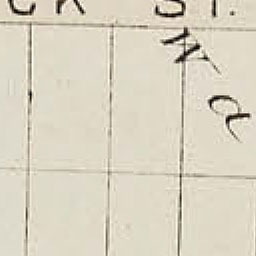 CK ST.
Wa